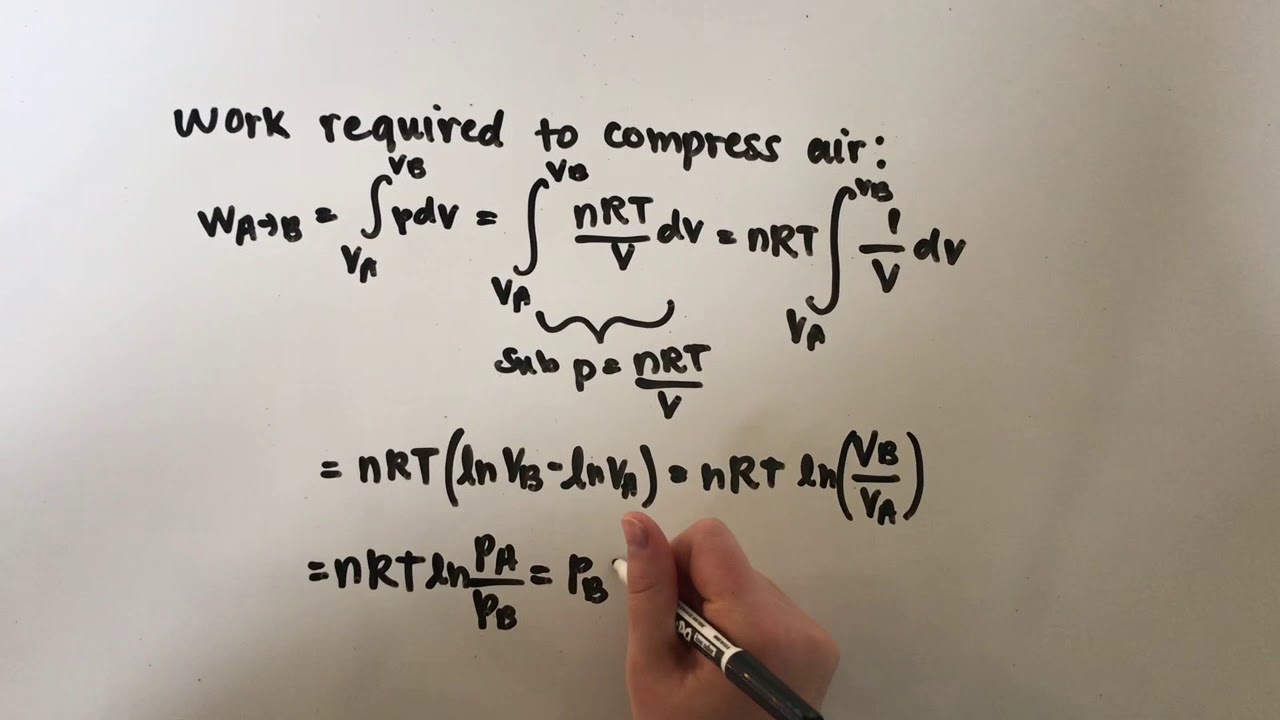 Work required to compress air:
W_{A→B} = ∫_{V_A}^{V_B} pdV = ∫_{V_A}^{V_B} \frac{nRT}{V} dV = nRT ∫_{V_A}^{V_B} \frac{1}{V} dV
Sub p = \frac{nRT}{V}
= nRT (ln V_B - ln V_A) = nRT ln(\frac{V_B}{V_A})
= nRT ln \frac{P_A}{P_B} = P_B